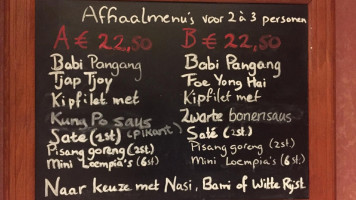 Afhaalmenu's voor 2 à 3 personen
A € 22,50
Babi Pangang
Tjap Tjoy
Kipfilet met
Kung Po saus
(pikant)
Saté (2st)
Pisang goreng (2st)
Mini Loempia's (6st)
B € 22,50
Babi Pangang
Foe Yong Hai
Kipfilet met
Zwarte bonensaus
Saté (2st)
Pisang goreng (2st)
Mini Loempia's (6st)
Naar keuze met Nasi, Bami of Witte Rijst